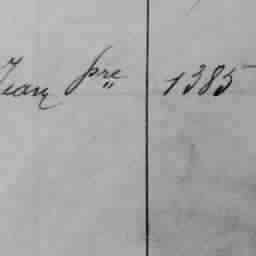 Jean pre 1385